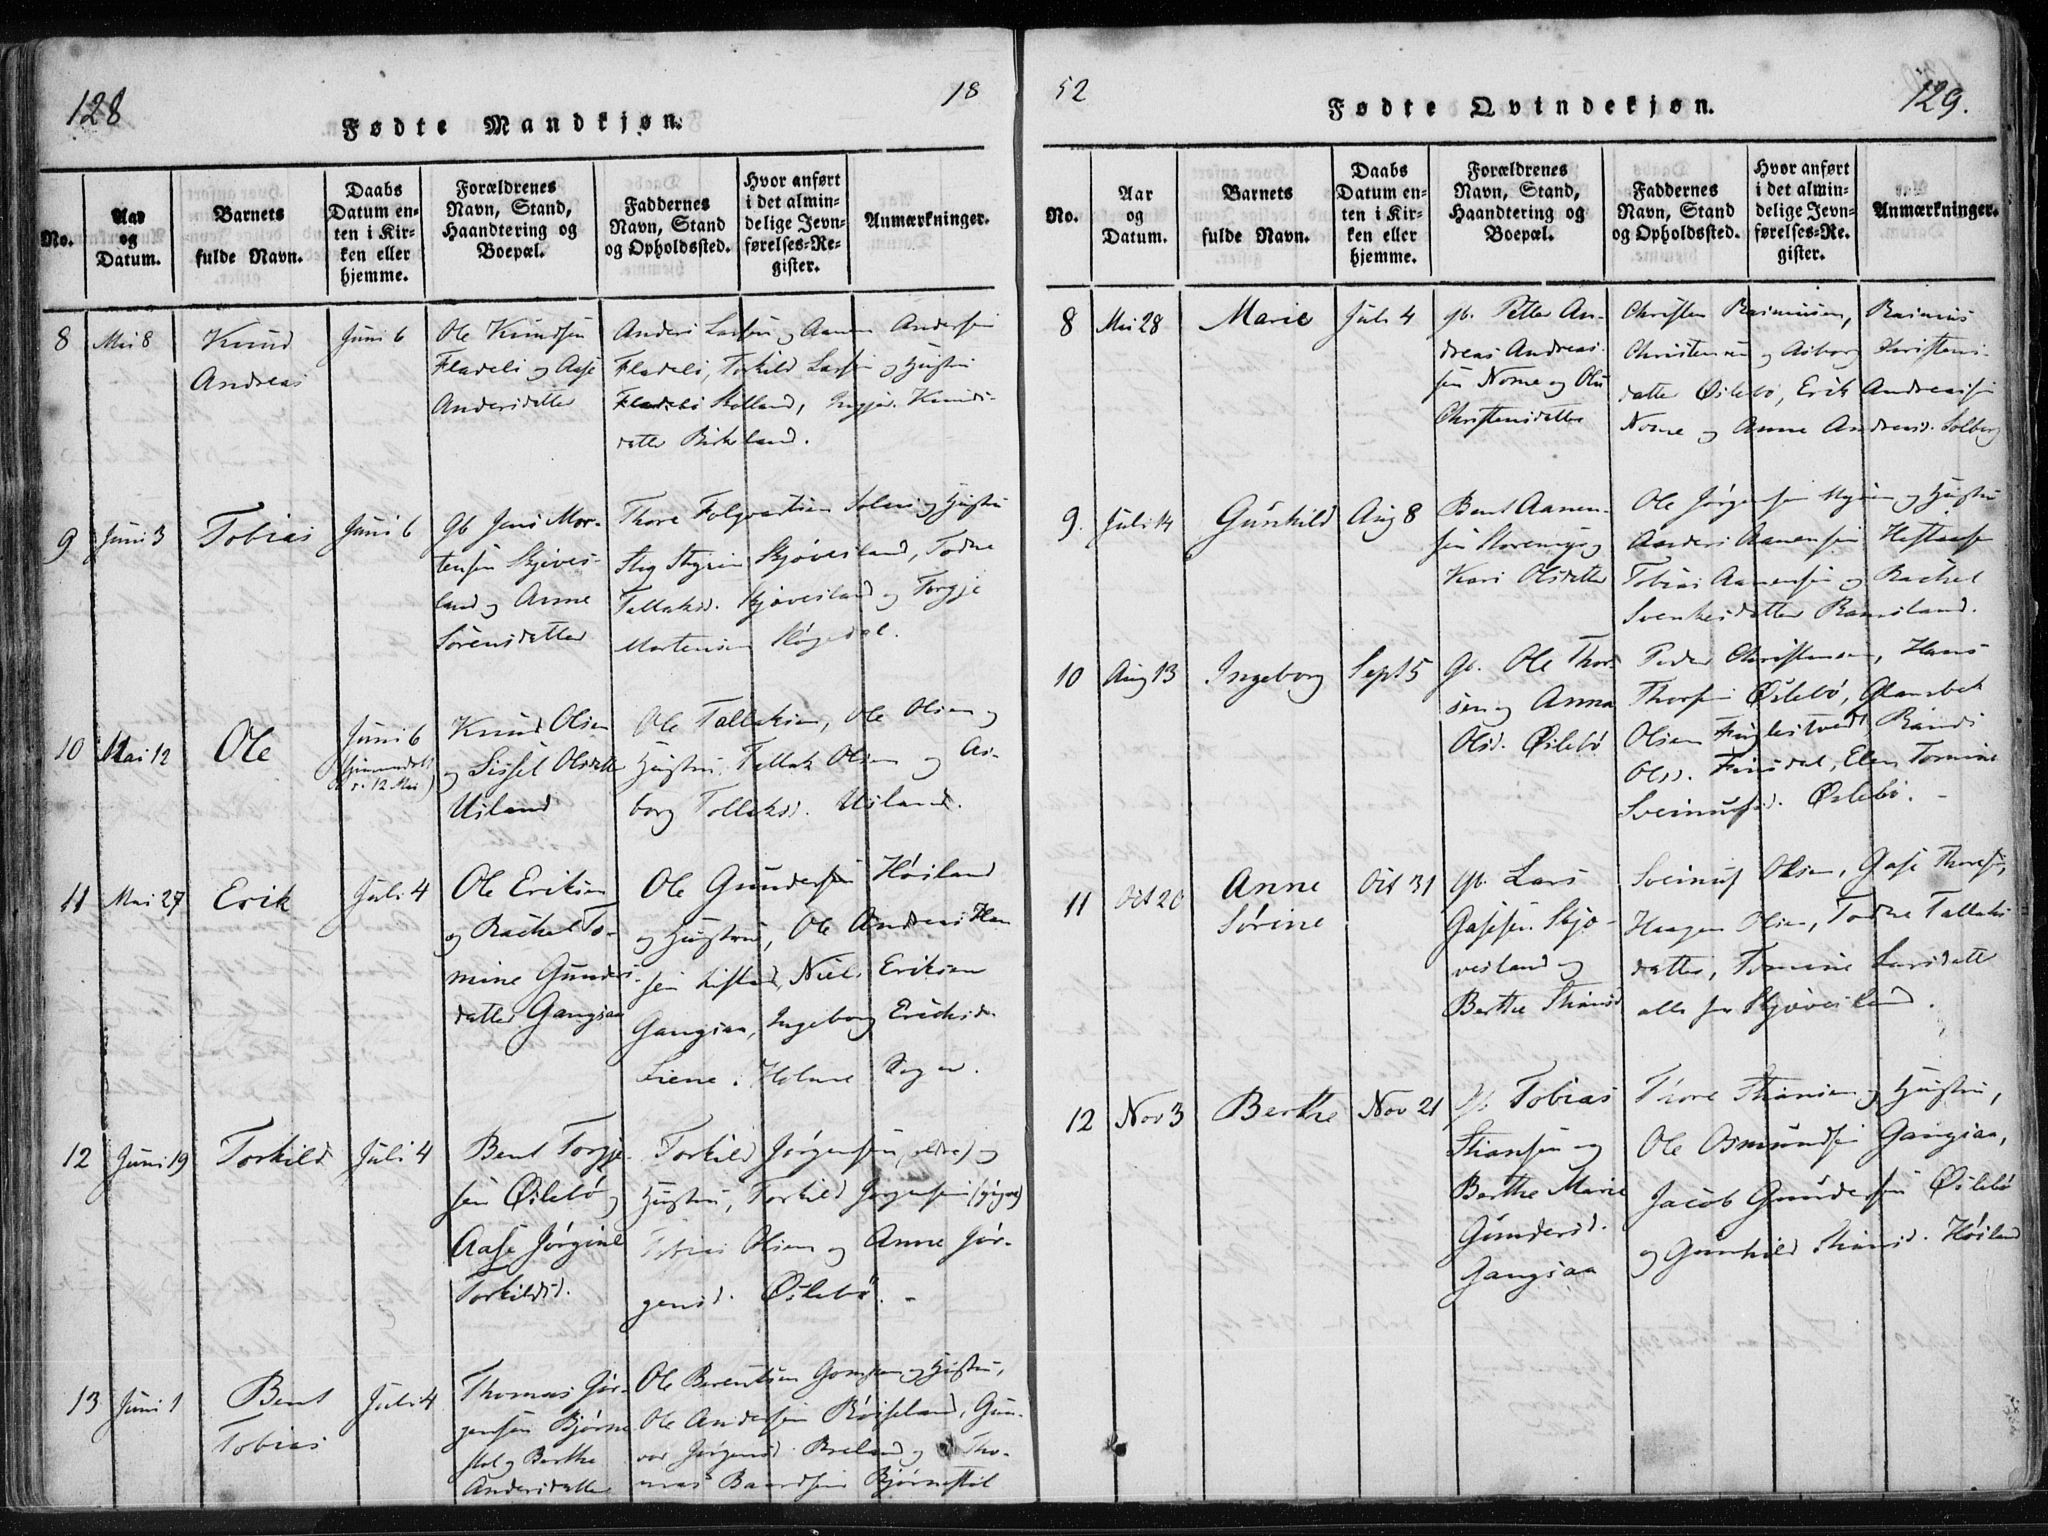 128
18
Fødte Mandkjøn.
No.
Aar og Datum.
Barnets fulde Navn.
Daabs Datum enten i Kirken eller hjemme.
Forældrenes Navn, Stand, Haandtering og Boepæl.
Faddernes Navn, Stand og Opholdssted.
Hvor anført i det almindelige Jevnførelses-Register.
Anmærkninger.
8
Mai 8
Knud
Andreas
Juni 6
Ole Knudsen
Fladeli og Aase
Andersdatter
Anders Larsen og Aanen Andersen
Fladeli, Torkild Larsen og Hustru
Fladeli Stolland, Knuds-
datter Birkeland.
9
Juni 3
Tobias
Juni 6
Gb Jens Mor-
tensen Skjøves-
land og Anne
Sørensdatter
Thore Folqvardsen og Hustru
Skjøvesland, Todne
Tallaksd. Skjøvesland og Torgje
Mortensen Høgedal.
10
Mai 12
Ole
Juni 6
(hjemmedøbt
d. 12 Mai)
Knud Olsen
og Sissel Olsdatter
Usland
Ole Tallaksen, Ole Olsen og
Hustru, Tallak Olsen og As-
borg Tollaksd. Usland.
11
Mai 27
Erik
Juli 4
Ole Eriksen
og Rachel To-
mine Gunders-
datter Gangsaa
Ole Gundersen Høiland
og Hustru, Ole Andreas Han
sen Niels Eriksen
Gangsaa, Ingeborg Eriksd.
Holme Sogn.
12
Juni 19
Torkild
Juli 4
Bent Torgje-
sen Øslebø og
Aase Jørgine
Torkildsd.
Torkild Jørgensen (eldre) og
Hustru, Torkild Jørgensen (yngre)
Tobias Olsen og Anne Jør-
gensd. Øslebø. -
13
Juni 1
Bent
Tobias
Juli 4
Thomas Jør-
gensen Bjørne
støl og Berthe
Andersdatter
Ole Berentsen og Hustru,
Ole Andersen Røiseland, Gun-
vor Jørgensd. Breland og Tho-
mas Baardsen Bjørnestøl
52
129.
Fødte Qvindekjøn.
No.
Aar og Datum.
Barnets fulde Navn.
Daabs Datum enten i Kirken eller hjemme.
Forældrenes Navn, Stand, Haandtering og Boepæl.
Faddernes Navn, Stand og Opholdssted.
Hvor anført i det almindelige Jevnførelses-Register.
Anmærkninger.
8
Mai 28
Marie
Juli 4
Gb. Petter An-
dreas Andreas-
sen Nome og
Christensdatter
Christen Rasmussen, Rasmus
Christensen og Asborg Christens-
datter Øslebø, Erik Andreassen
Nome og Anne Andreasd. Solberg
9.
Juli 14
Gunhild
Aug 8
Bent Aanen-
sen Storemyr og
Kari Olsdatter
Ole Jørgensen og Hustru
Anders Aanensen
Tobias Aanensen og Rachel
Svenkesdatter Ramsland.
10
Aug 13
Ingeborg
Sept 5
Gb. Ole Thor-
sen og Anna
Olsd. Øslebø
Peder Christensen, Hans
Thorsen Øslebø,
Olsen Fuglestvedt, Randi
Olsd. Finsdal, Elen Tomine
Sveinufsd. Øslebø. -
11
Oct 20
Anne
Sørine
Oct 31
Gb. Lars
Gasesen Skjø-
vesland og
Berthe Stiansd
Sveinuf Olsen, Gase Thoresen,
Haagen Olsen, Todne Tallaks
datter, Tomine Larsdatter
alle fra Skjøvesland.
12
Nov 3
Berthe
Nov 21
Gb. Tobias
Stiansen og
Berthe Marie
Gundersd.
Gangsaa
Thore Stiansen og Hustru,
Ole Osmundsen Gangsaa,
Jacob Gundersen Øslebø
og Gunhild Stiansd. Høiland